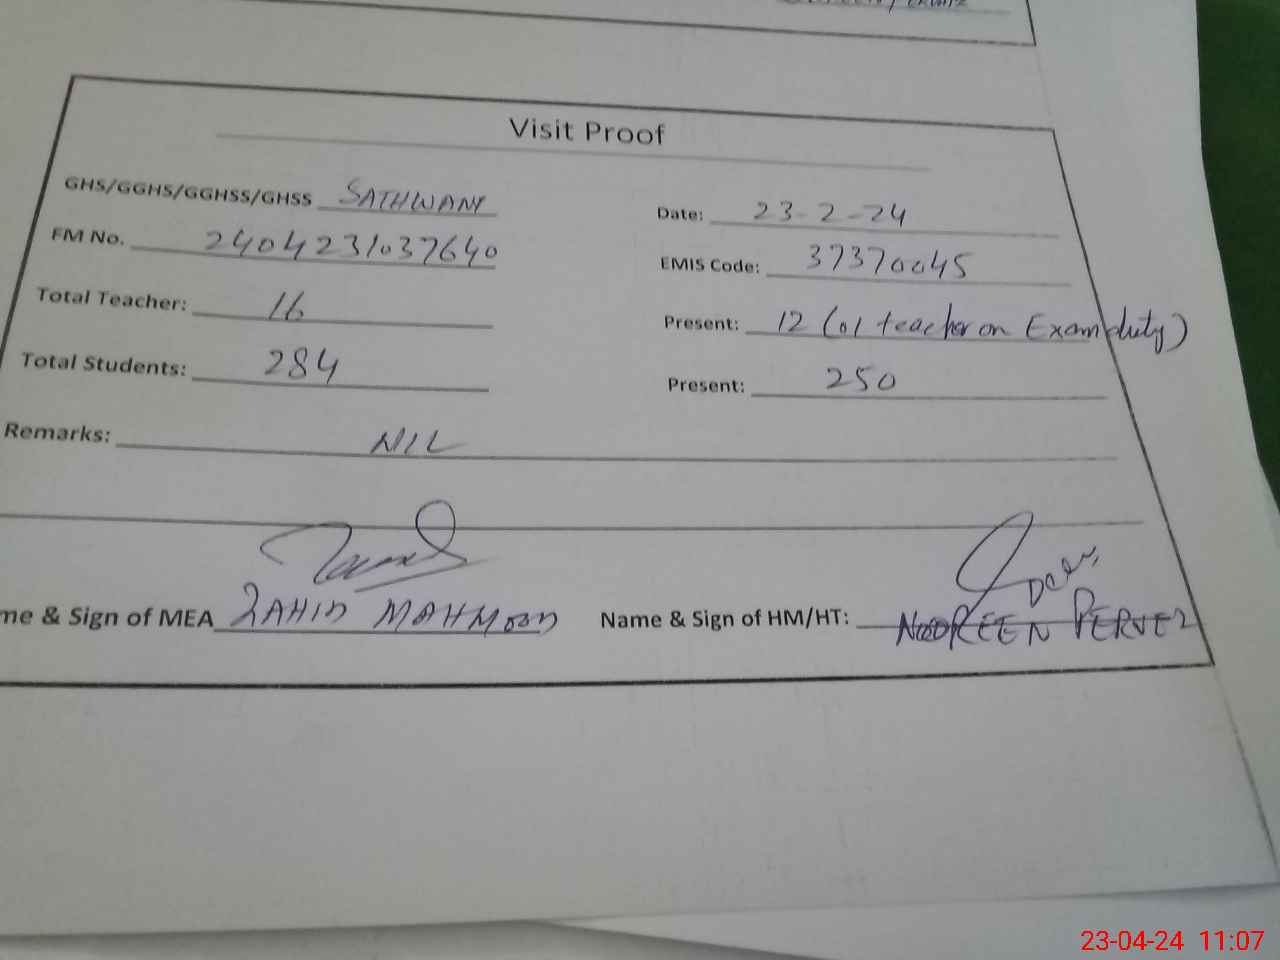 Visit Proof
GHS/GGHS/GGHSS/GHSS SATHWANI
Date: 23-2-24
FM No. 2404231037640
EMIS Code: 37370045
Total Teacher: 16
Present: 12 (01 teacher on Exam duty)
Total Students: 284
Present: 250
Remarks: NIL
me & Sign of MEA ZAHID MAHMOOD
Name & Sign of HM/HT: NOOREEN PERVEZ
23-04-24 11:07